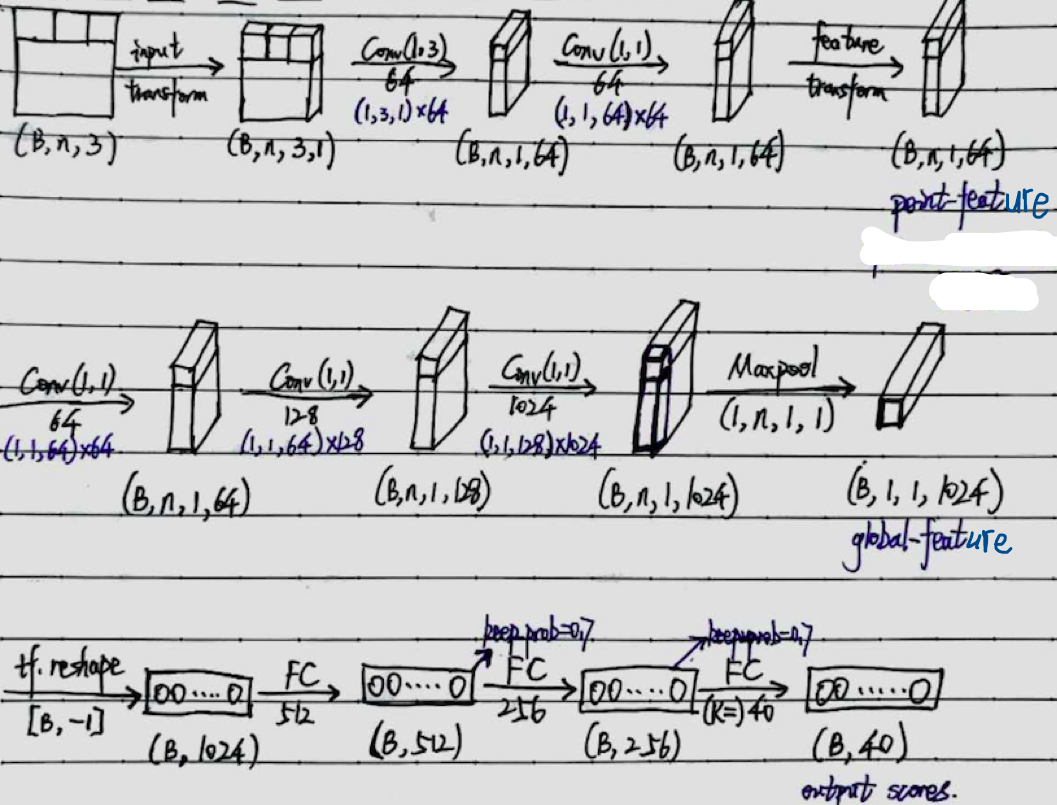 input Conv(1,3) Conv(1,1) feature
transform 64 64 transform
(1,3,1)×64 (1,1,64)×64
(B,n,3) (B,n,3,1) (B,n,1,64) (B,n,1,64) (B,n,1,64)
point-feature
Conv(1,1) Conv(1,1) Conv(1,1) Maxpool
64 128 1024 (1,n,1,1)
(1,1,64)×64 (1,1,64)×128 (1,1,128)×1024
(B,n,1,64) (B,n,1,128) (B,n,1,1024) (B,1,1,1024)
global-feature
keep prob=0.7 keep prob=0.7
tf.reshape FC FC FC
[B,-1] 00....0 512 00....0 256 00....0 (K=)40 00.....0
(B,1024) (B,512) (B,256) (B,40)
output scores.